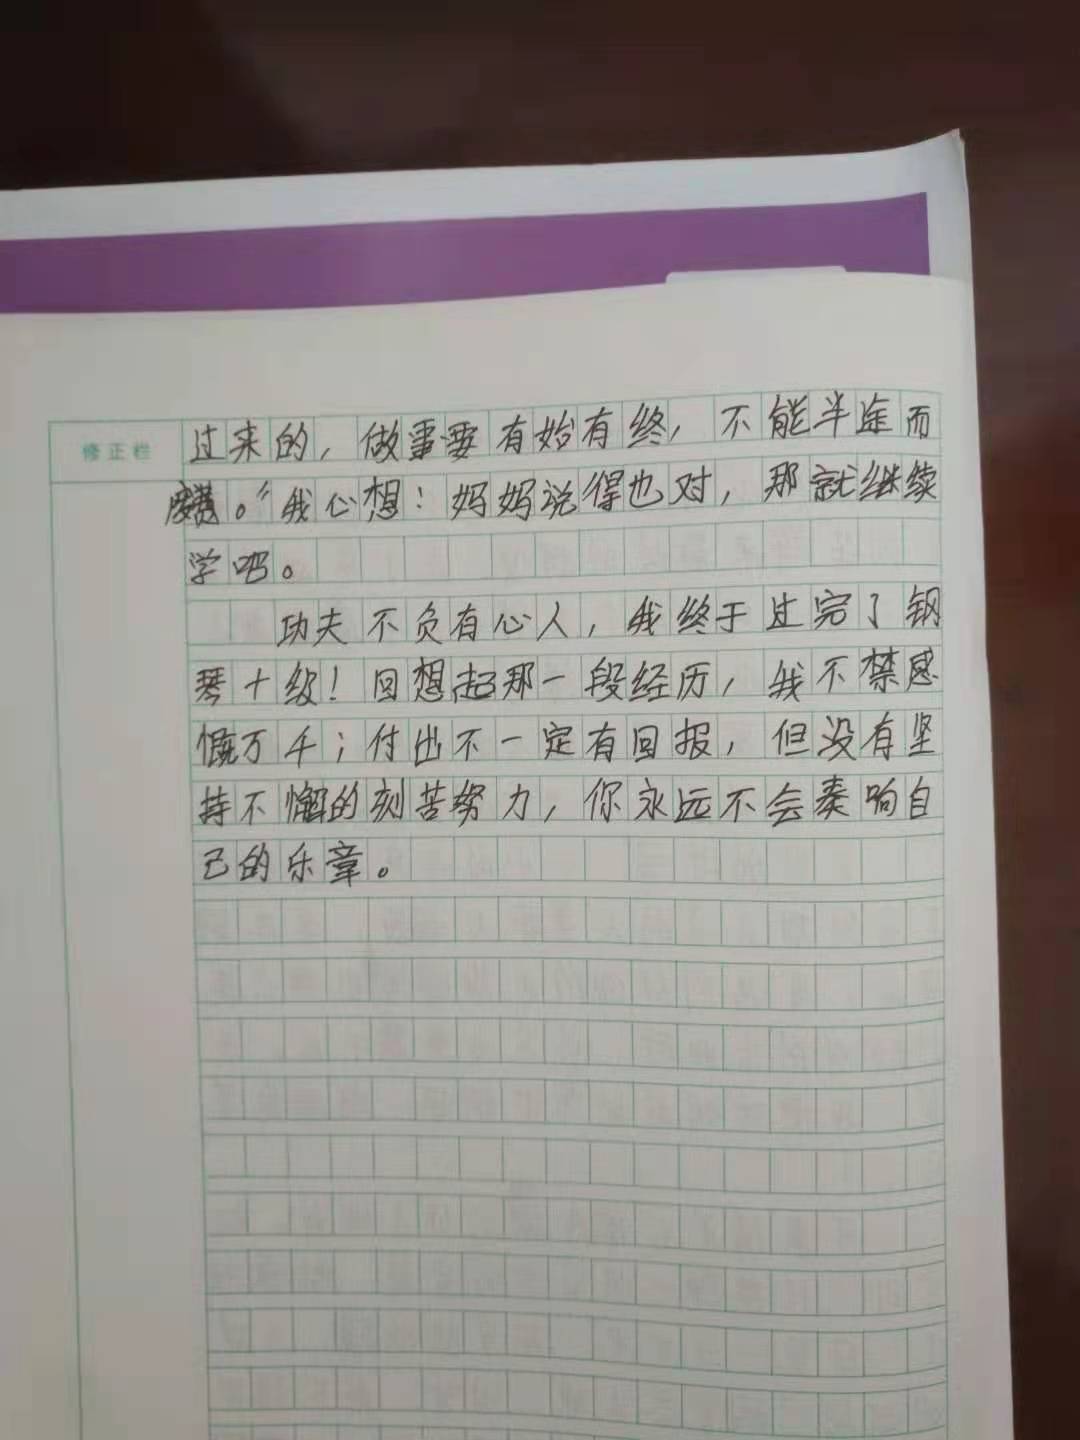 修正栏
过来的，做事要有始有终，不能半途而
废。"我心想：妈妈说得也对，那就继续
学吧。
功夫不负有心人，我终于过完了钢
琴十级！回想起那一段经历，我不禁感
慨万千；付出不一定有回报，但没有坚
持不懈的刻苦努力，你永远不会奏响自
己的乐章。